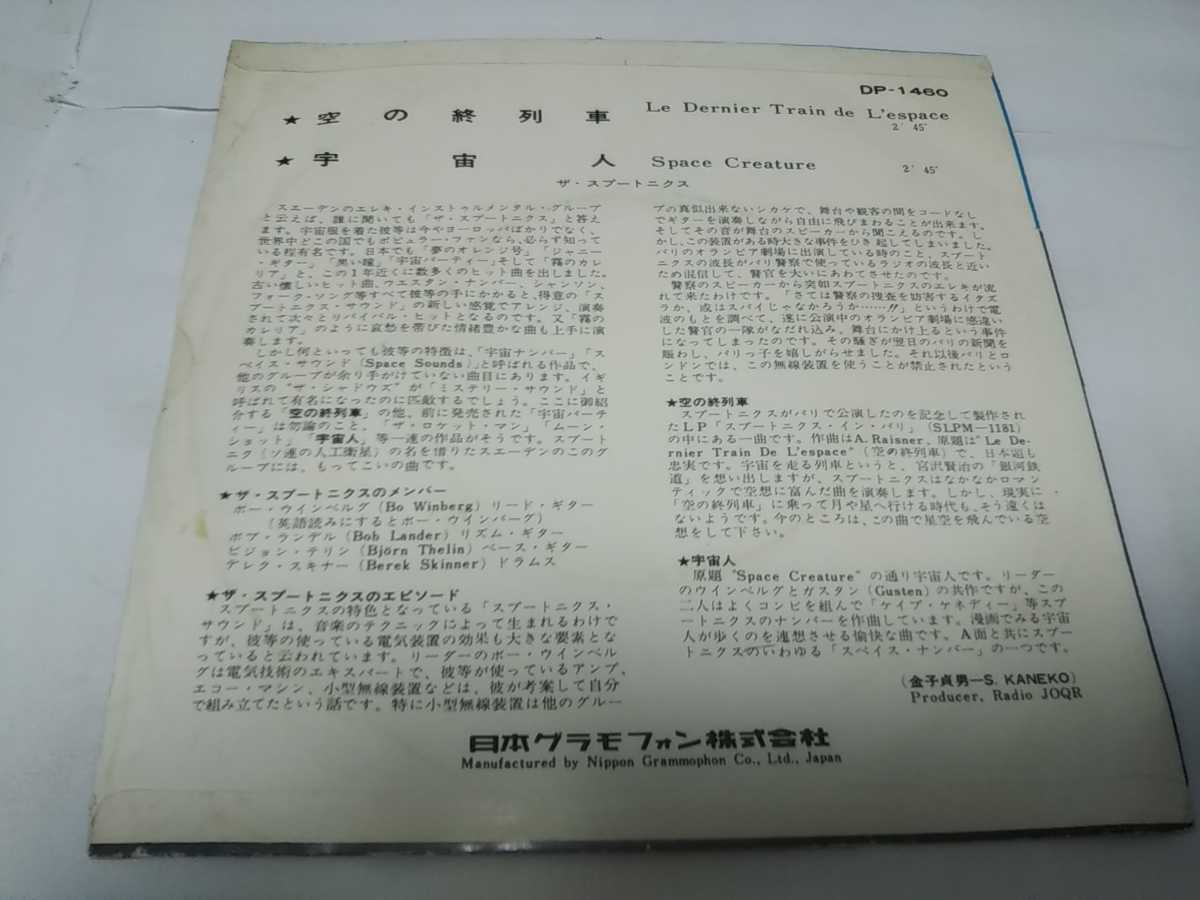 DP-1460
★空の終列車 Le Dernier Train de L'espace
2′45″
★宇宙人 Space Creature 2′45″
ザ・スプートニクス
スエーデンのエレキ・インストゥルメンタル・グループ
と云えば、誰に聞いても「ザ・スプートニクス」と答え
ます。宇宙服を着た彼等は今やヨーロッパばかりでなく、
世界中どこの国でもポピュラー・ファンなら、必らず知って
いる程有名です。日本でも「夢のオレンジ号」「ジャニー
・ギター」「黒い瞳」「宇宙パーティー」そして「霧のカレ
リア」と、この1年近くに数多くのヒット曲を出しました。
古い懐しいヒット曲、ウエスタン・ナンバー、シャンソン、
フォーク・ソング等すべて彼等の手にかかると、得意の「ス
プートニクス・サウンド」の新しい感覚でアレンジ、演奏
されて次々とリバイバル・ヒットとなるのです。又「霧の
カレリア」のように哀愁を帯びた情緒豊かな曲も上手に演
奏します。
しかし何といっても彼等の特徴は、「宇宙ナンバー」「ス
ペイス・サウンド(Space Sounds)」と呼ばれる作品で、
他のグループが余り手がけていない曲目にあります。イギ
リスの“ザ・シャドウズ”が「ミステリー・サウンド」と
呼ばれて有名になったのに匹敵するでしょう。ここに御紹
介する「空の終列車」の他、前に発売された「宇宙パーテ
ィー」は勿論のこと、「ザ・ロケット・マン」「ムーン・
ショット」「宇宙人」等一連の作品がそうです。スプート
ニク(ソ連の人工衛星)の名を借りたスエーデンのこのグ
ループには、もってこいの曲です。
★ザ・スプートニクスのメンバー
ボー・ウインベルグ(Bo Winberg)リード・ギター
(英語読みにするとボー・ウインバーグ)
ボブ・ランデル(Bob Lander)リズム・ギター
ビジョン・テリン(Björn Thelin)ベース・ギター
デレク・スキナー(Berek Skinner)ドラムス
★ザ・スプートニクスのエピソード
スプートニクスの特色となっている「スプートニクス・
サウンド」は、音楽のテクニックによって生まれるわけで
すが、彼等の使っている電気装置の効果も大きな要素とな
っていると云われています。リーダーのボー・ウインベル
グは電気技術のエキスパートで、彼等が使っているアンプ、
エコー・マシン、小型無線装置などは、彼が考案して自分
で組み立てたという話です。特に小型無線装置は他のグルー
プの真似出来ないシカケで、舞台や観客の間をコードなし
でギターを演奏しながら自由に飛びまわることが出来ます。
そしてその音が舞台のスピーカーから聞こえるのです。し
かし、この装置がある時大きな事件をひき起してしまいました。
パリのオランピア劇場に出演している時のこと、スプート
ニクスの波長がパリ警察で使っているラジオの波長と近い
ため混信して、警官を大いにあわてさせたのです。
警察のスピーカーから突如スプートニクスのエレキが流
れて来たわけです。「さては警察の捜査を妨害するイタズ
ラか、或はスパイじゃなかろうか……!!」というわけで電
波のもとを調べて、遂に公演中のオランピア劇場に感違い
した警官の一隊がなだれ込み、舞台にかけ上るという事件
になってしまったのです。その騒ぎが翌日のパリの新聞を
賑わし、パリっ子を嬉しがらせました。それ以後パリとロ
ンドンでは、この無線装置を使うことが禁止されたという
ことです。
★空の終列車
スプートニクスがパリで公演したのを記念して製作され
たLP「スプートニクス・イン・パリ」(SLPM—1181)
の中にある一曲です。作曲はA. Raisner、原題は“Le De-
rnier Train De L'espace”(空の終列車)で、日本題も
忠実です。宇宙を走る列車というと、宮沢賢治の「銀河鉄
道」を想い出しますが、スプートニクスはなかなかロマン
ティックで空想に富んだ曲を演奏します。しかし、現実に
「空の終列車」に乗って月や星へ行ける時代も、そう遠くは
ないようです。今のところは、この曲で星空を飛んでいる空
想をして下さい。
★宇宙人
原題“Space Creature”の通り宇宙人です。リーダー
のウインベルグとガスタン(Gusten)の共作ですが、この
二人はよくコンビを組んで「ケイプ・ケネディー」等スプ
ートニクスのナンバーを作曲しています。漫画でみる宇宙
人が歩くのを連想させる愉快な曲です。A面と共にスプー
トニクスのいわゆる「スペイス・ナンバー」の一つです。
(金子貞男—S. KANEKO)
Producer, Radio JOQR
日本グラモフォン株式会社
Manufactured by Nippon Grammophon Co., Ltd., Japan